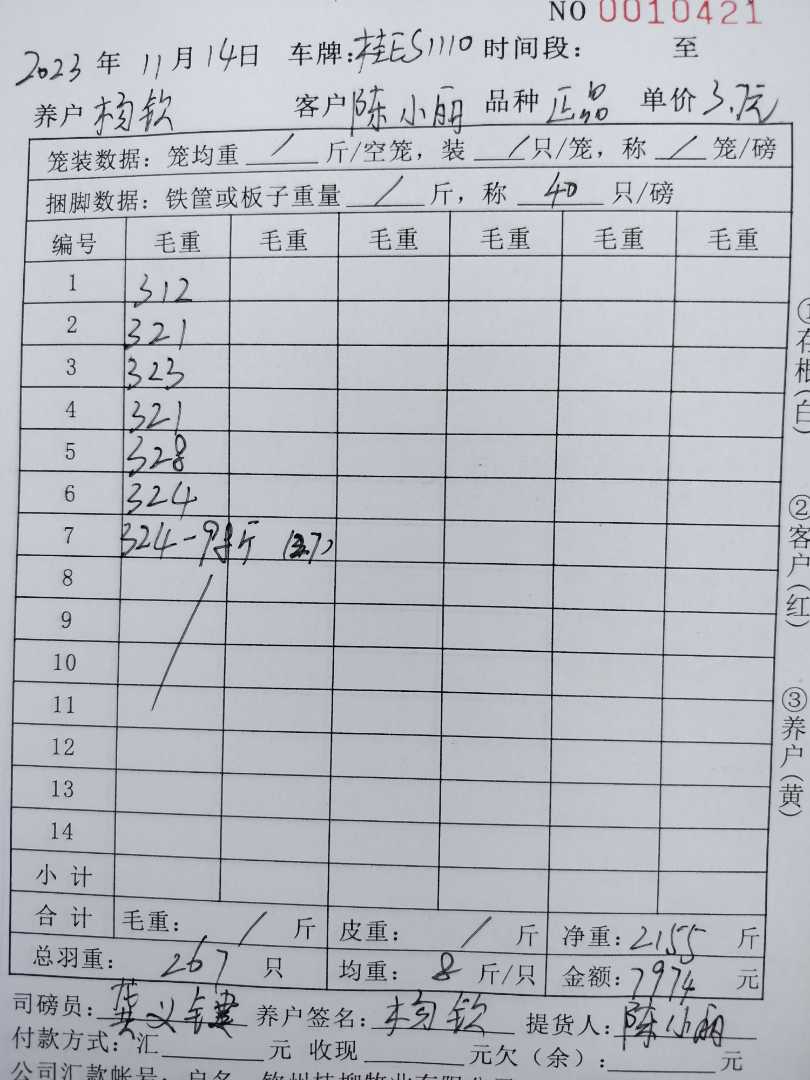 NO 0010421
2023 年 11 月 14 日 车牌:桂ES1110 时间段: 至
养户 杨钦 客户 陈小丽 品种 正品 单价 3.7元
笼装数据: 笼均重 / 斤/空笼, 装 / 只/笼, 称 / 笼/磅
捆脚数据: 铁筐或板子重量 / 斤, 称 40 只/磅
编号 毛重 毛重 毛重 毛重 毛重 毛重
1 312
2 321
3 323
4 321
5 328
6 324
7 324-98斤
8
9
10
11
12
13
14
小计
合计 毛重: / 斤 皮重: / 斤 净重: 2155 斤
总羽重: 267 只 均重: 8 斤/只 金额: 7974 元
司磅员: 义 养户签名: 杨钦 提货人: 陈小丽
付款方式: 汇 元 收现 元欠(余): 元
公司汇款帐号: 户名
①存根(白)
②客户(红)
③养户(黄)